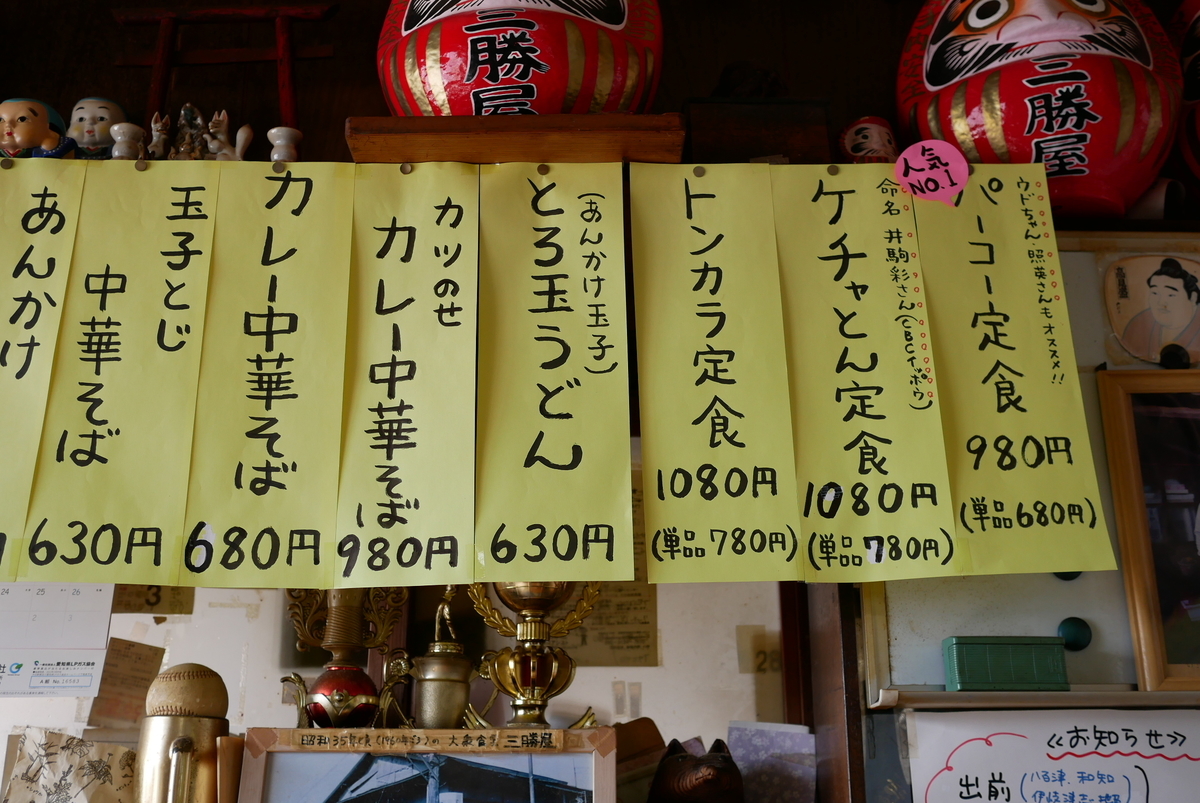 三勝屋
三勝屋
人気
NO.1
ウドちゃん・照英さんもオススメ!!
パーコー定食
980円
(単品680円)
命名 井駒彩さん(CBCイッポウ)
ケチャとん定食
1080円
(単品780円)
トンカラ定食
1080円
(単品780円)
(あんかけ玉子)
とろ玉うどん
630円
カツのせ
カレー中華そば
980円
カレー中華そば
680円
玉子とじ
中華そば
630円
あんかけ
24 25 26
3
愛知県LPガス協会
28
昭和35年頃(1960年頃)の 大衆食堂 三勝屋
≪お知らせ≫
出前
(八百津、和知